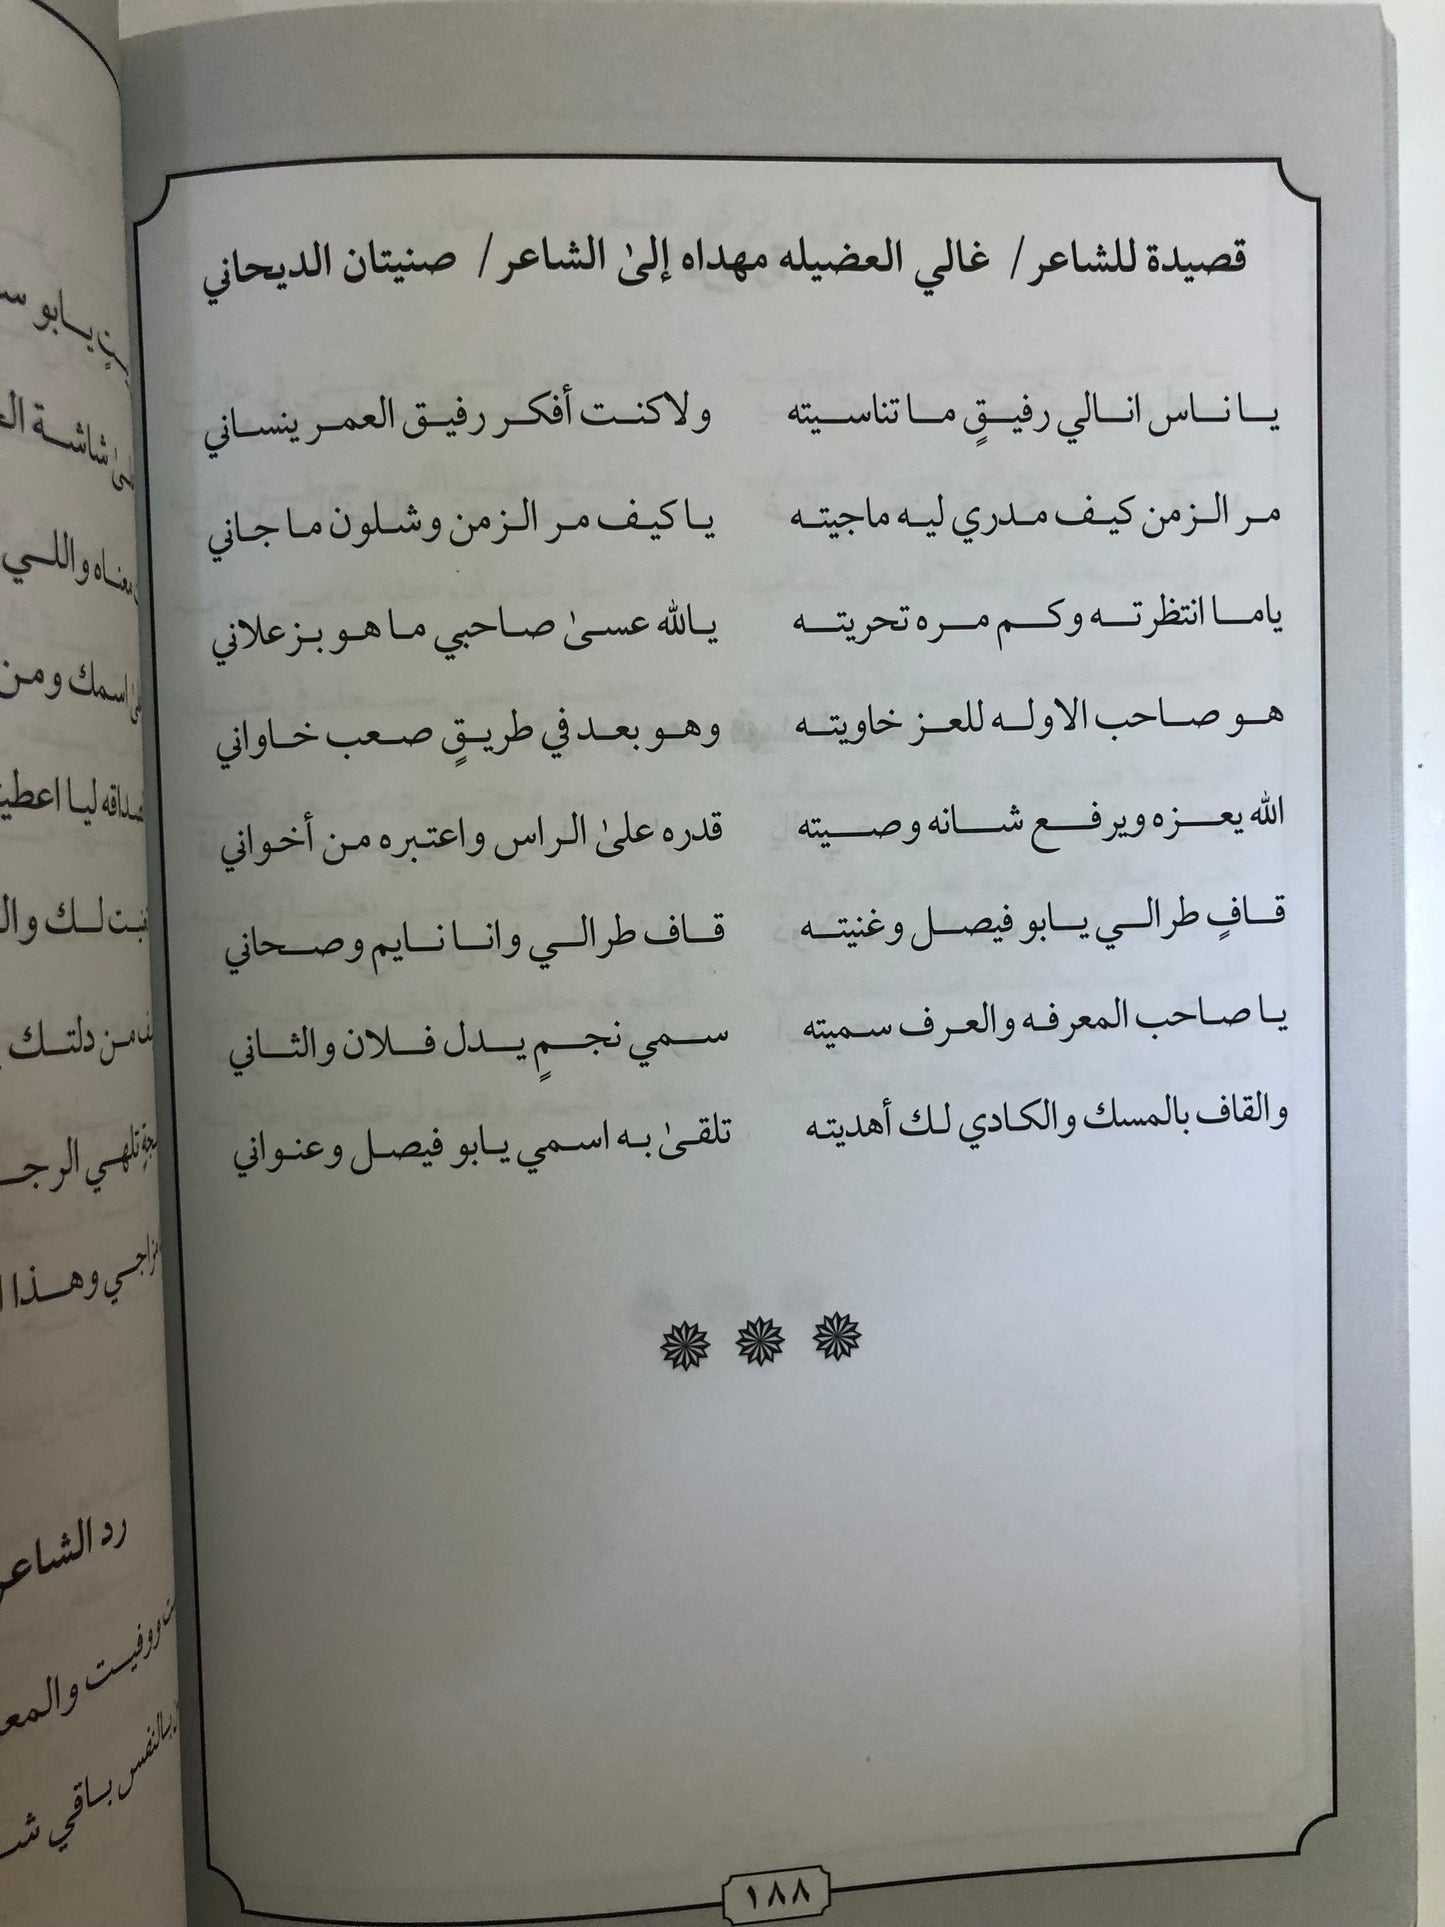 قصيدة للشاعر/ غالي العضيله مهداه إلىٰ الشاعر/ صنيتان الديحاني
يا ناس انالي رفيقٍ ما تناسيته ولاكنت أفكر رفيق العمر ينساني
مر الزمن كيف مدري ليه ماجيته يا كيف مر الزمن وشلون ما جاني
ياما انتظرته وكم مره تحريته يالله عسىٰ صاحبي ما هو بزعلاني
هو صاحب الاوله للعز خاويته وهو بعد في طريقٍ صعب خاواني
الله يعزه ويرفع شانه وصيته قدره علىٰ الراس واعتبره من أخواني
قافٍ طرالي يابو فيصل وغنيته قاف طرالي وانا نايم وصحاني
يا صاحب المعرفه والعرف سميته سمي نجمٍ يدل فلان والثاني
والقاف بالمسك والكادي لك أهديته تلقىٰ به اسمي يابو فيصل وعنواني
١٨٨
يابو
شاشة
معناه واللي
اسمك ومن
ليا
لك
من دلتك
تلهي
وهذا
رد الشاعر
ووفيت
بالنفس باقي